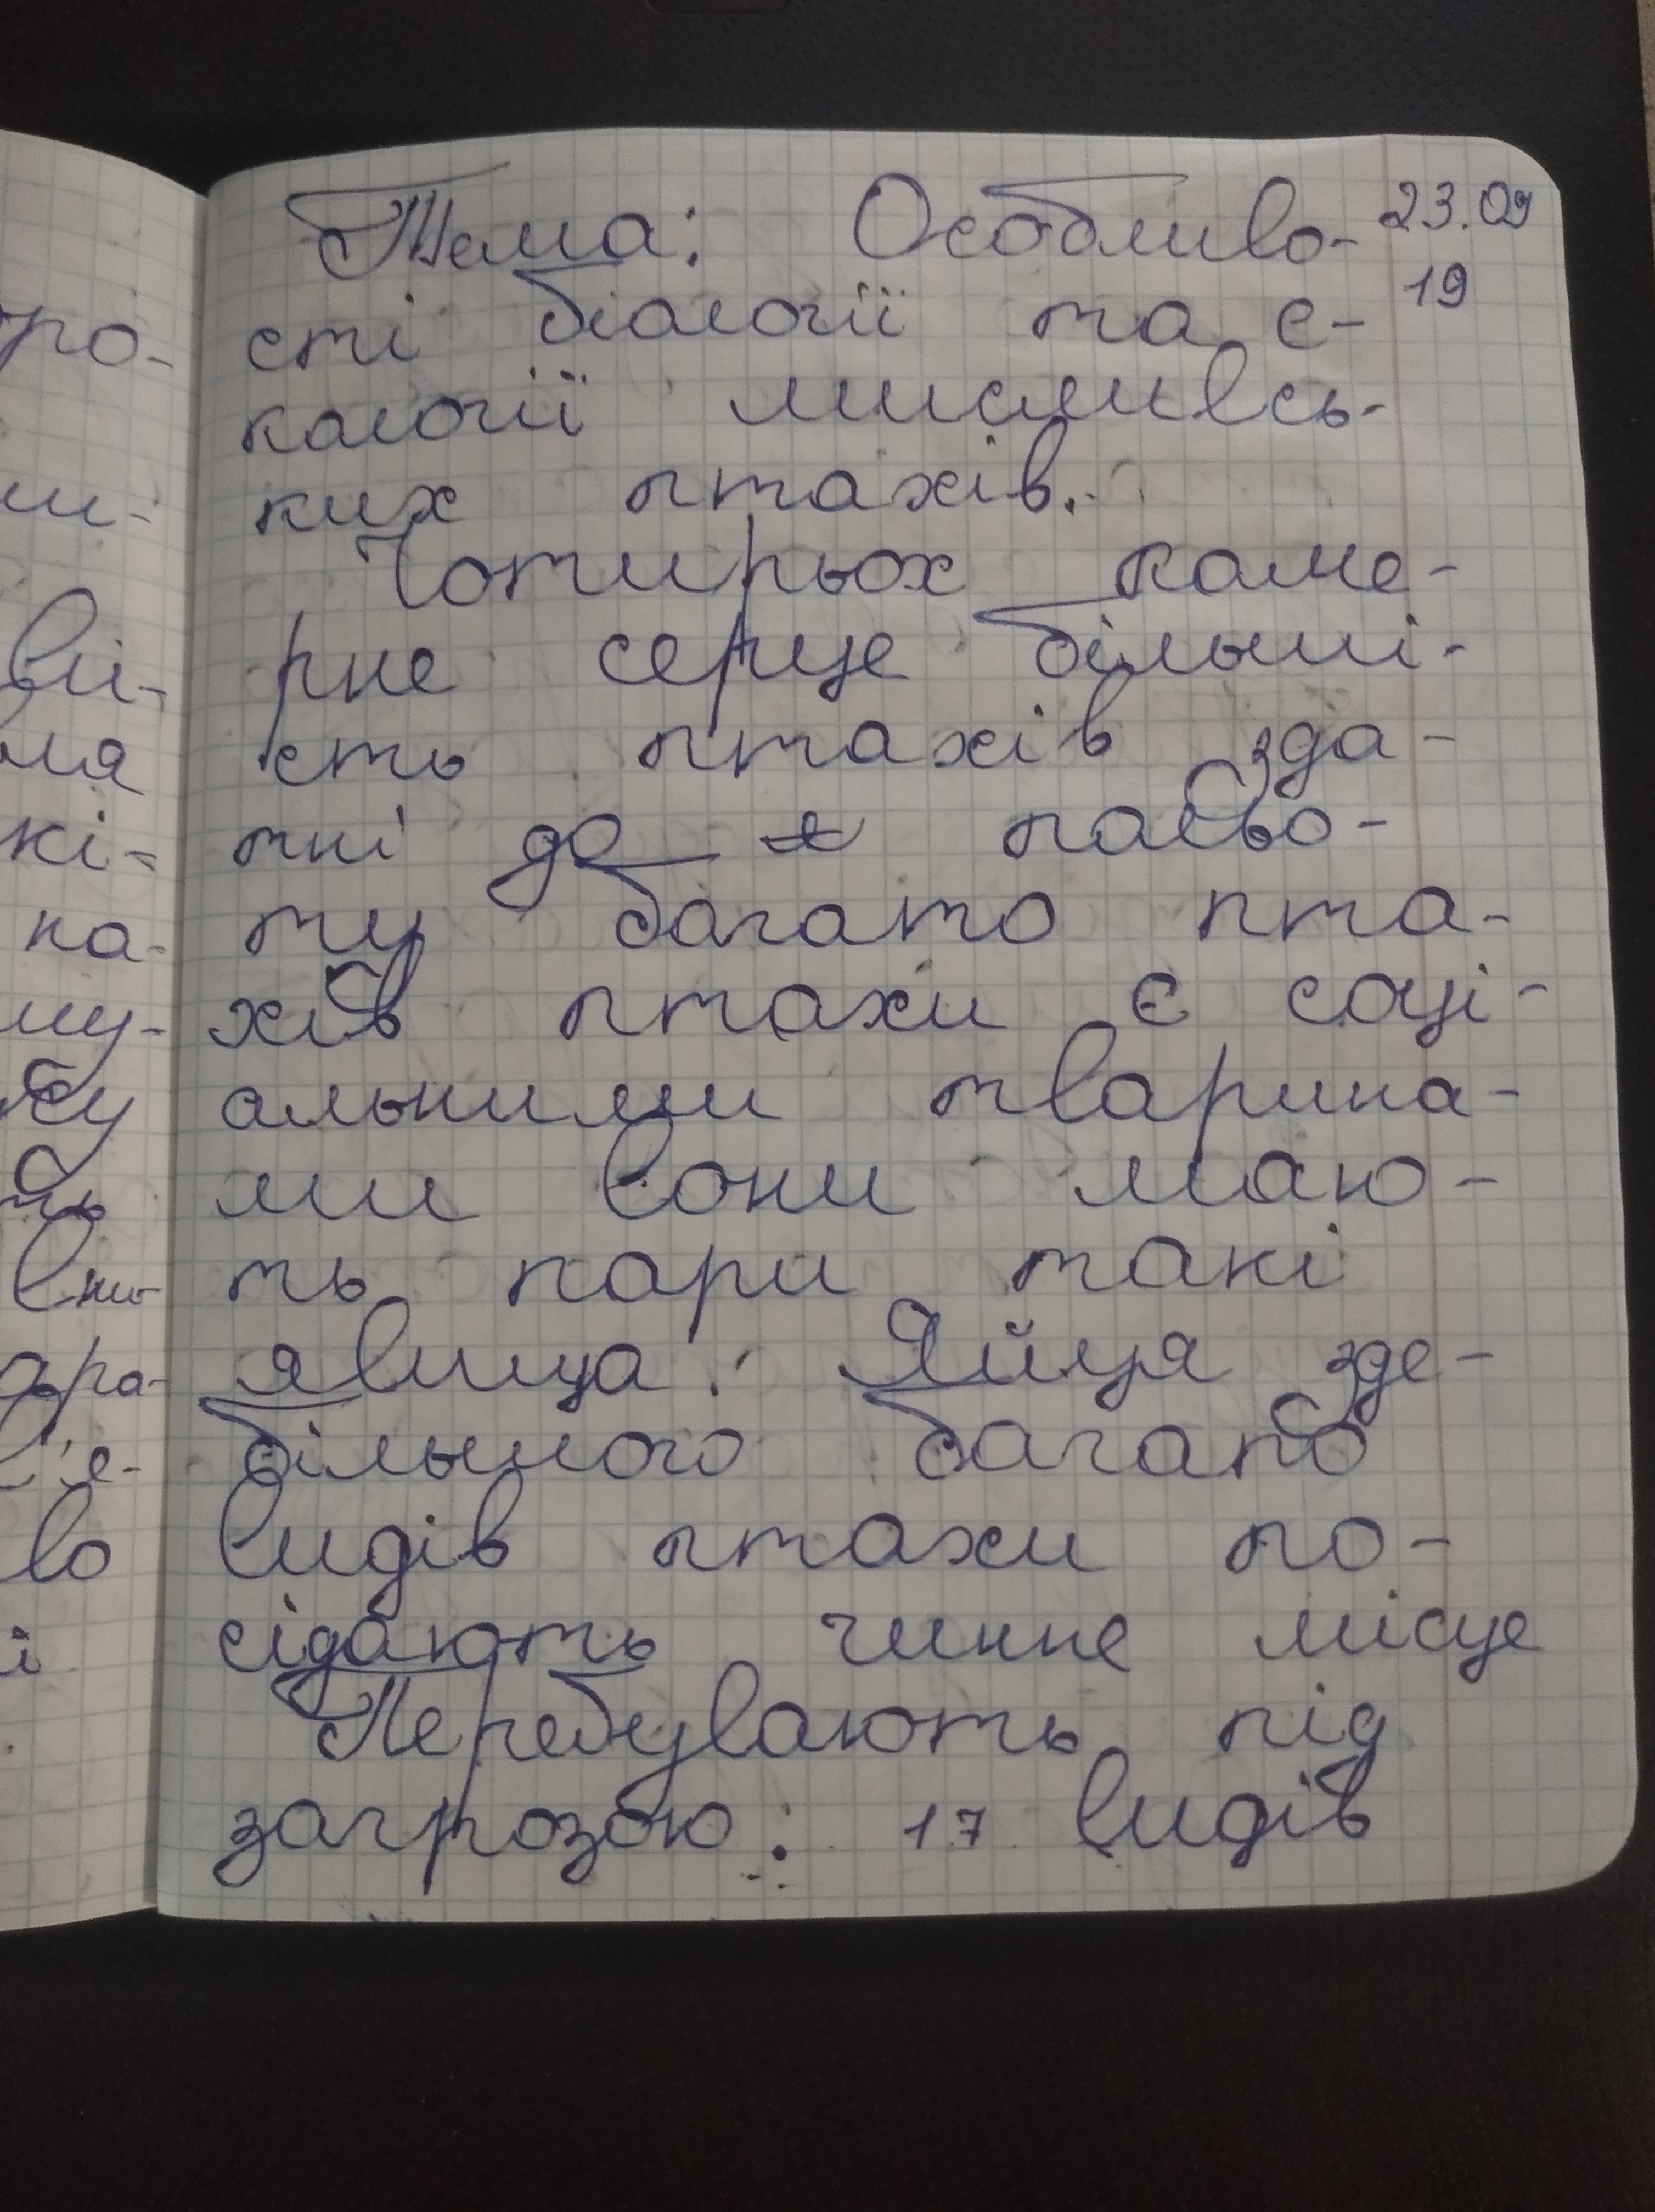 Тема: Особливо- 23.09
сті біології та є- 19
кології мисливсь-
ких птахів.
Чотирьох каме-
рне серце більші-
сть птахів зда-
тні до польо-
ту багато пта-
хів птахи є соці-
альними тварина-
ми вони маю-
ть пари такі
явища: Яйця зде-
більного багато
видів птахи по-
сідають чинне місце
Перебувають під
загрозою: 17 видів
ро-
ви-
ля
кі-
на-
му-
ть
во
і